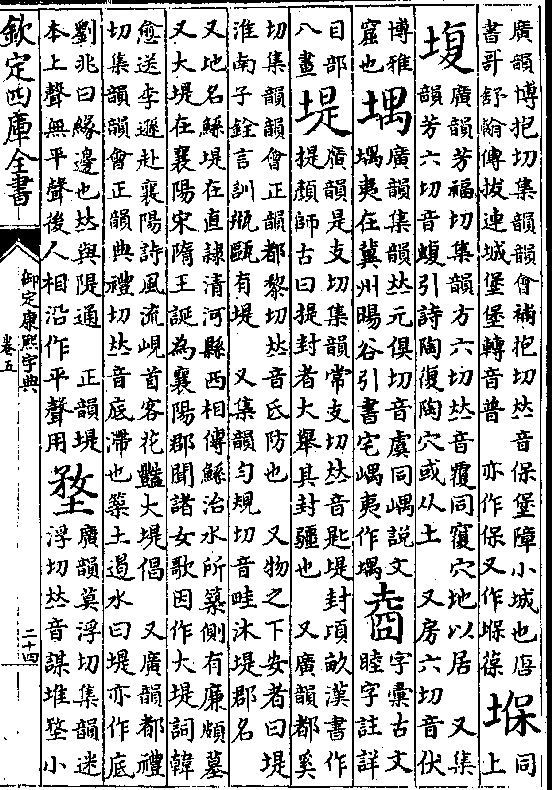 廣韻博抱切集韻韻會補抱切𠀤音保堡障小城也唐
書哥舒翰傳拔連城堡堡轉音普 亦作保又作堢葆
堢
同
上
廣韻芳福切集韻方六切𠀤音覆同𥨍穴地以居 又集
韻芳六切音蝮引詩陶復陶穴或从土 又房六切音伏
博雅
窟也
堣
廣韻集韻𠀤元俱切音虞同嵎說文
堣夷在冀州暘谷引書宅嵎夷作堣
字彙古文
睦字註詳
目部
八畫
堤
廣韻是支切集韻常支切𠀤音匙堤封頃畝漢書作
提顏師古曰提封者大舉其封疆也 又廣韻都奚
切集韻韻會正韻都黎切𠀤音氐防也 又物之下安者曰堤
淮南子銓言訓瓶甌有堤 又集韻勻規切音畦沐堤郡名
又地名鯀堤在直隸清河縣西相傳鯀治水所築側有廉頗墓
又大堤在襄陽宋隋王誕為襄陽郡聞諸女歌因作大堤詞韓
愈送李遜赴襄陽詩風流峴首客花豔大堤倡 又廣韻都禮
切集韻韻會正韻典禮切𠀤音底滯也築土遏水曰堤亦作底
劉兆曰緣邊也𠀤與隄通 正韻堤
本上聲無平聲後人相沿作平聲用
堥
廣韻莫浮切集韻迷
浮切𠀤音謀堆堥小
欽定四庫全書
御定康熙字典
卷五
二十四